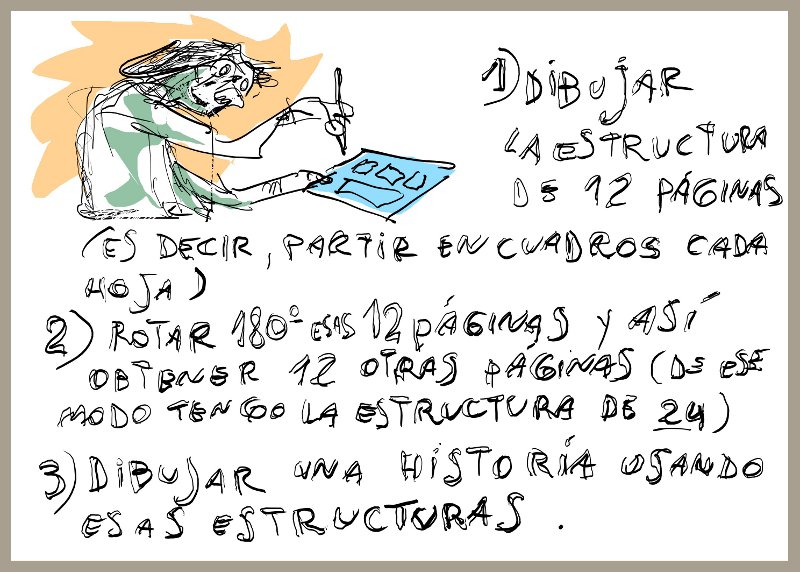 1) DIBUJAR
LA ESTRUCTURA
DE 12 PÁGINAS
(ES DECIR, PARTIR EN CUADROS CADA
HOJA)
2) ROTAR 180º ESAS 12 PÁGINAS Y ASÍ
OBTENER 12 OTRAS PÁGINAS (DE ESE
MODO TENGO LA ESTRUCTURA DE 24)
3) DIBUJAR UNA HISTORÍA USANDO
ESAS ESTRUCTURAS.